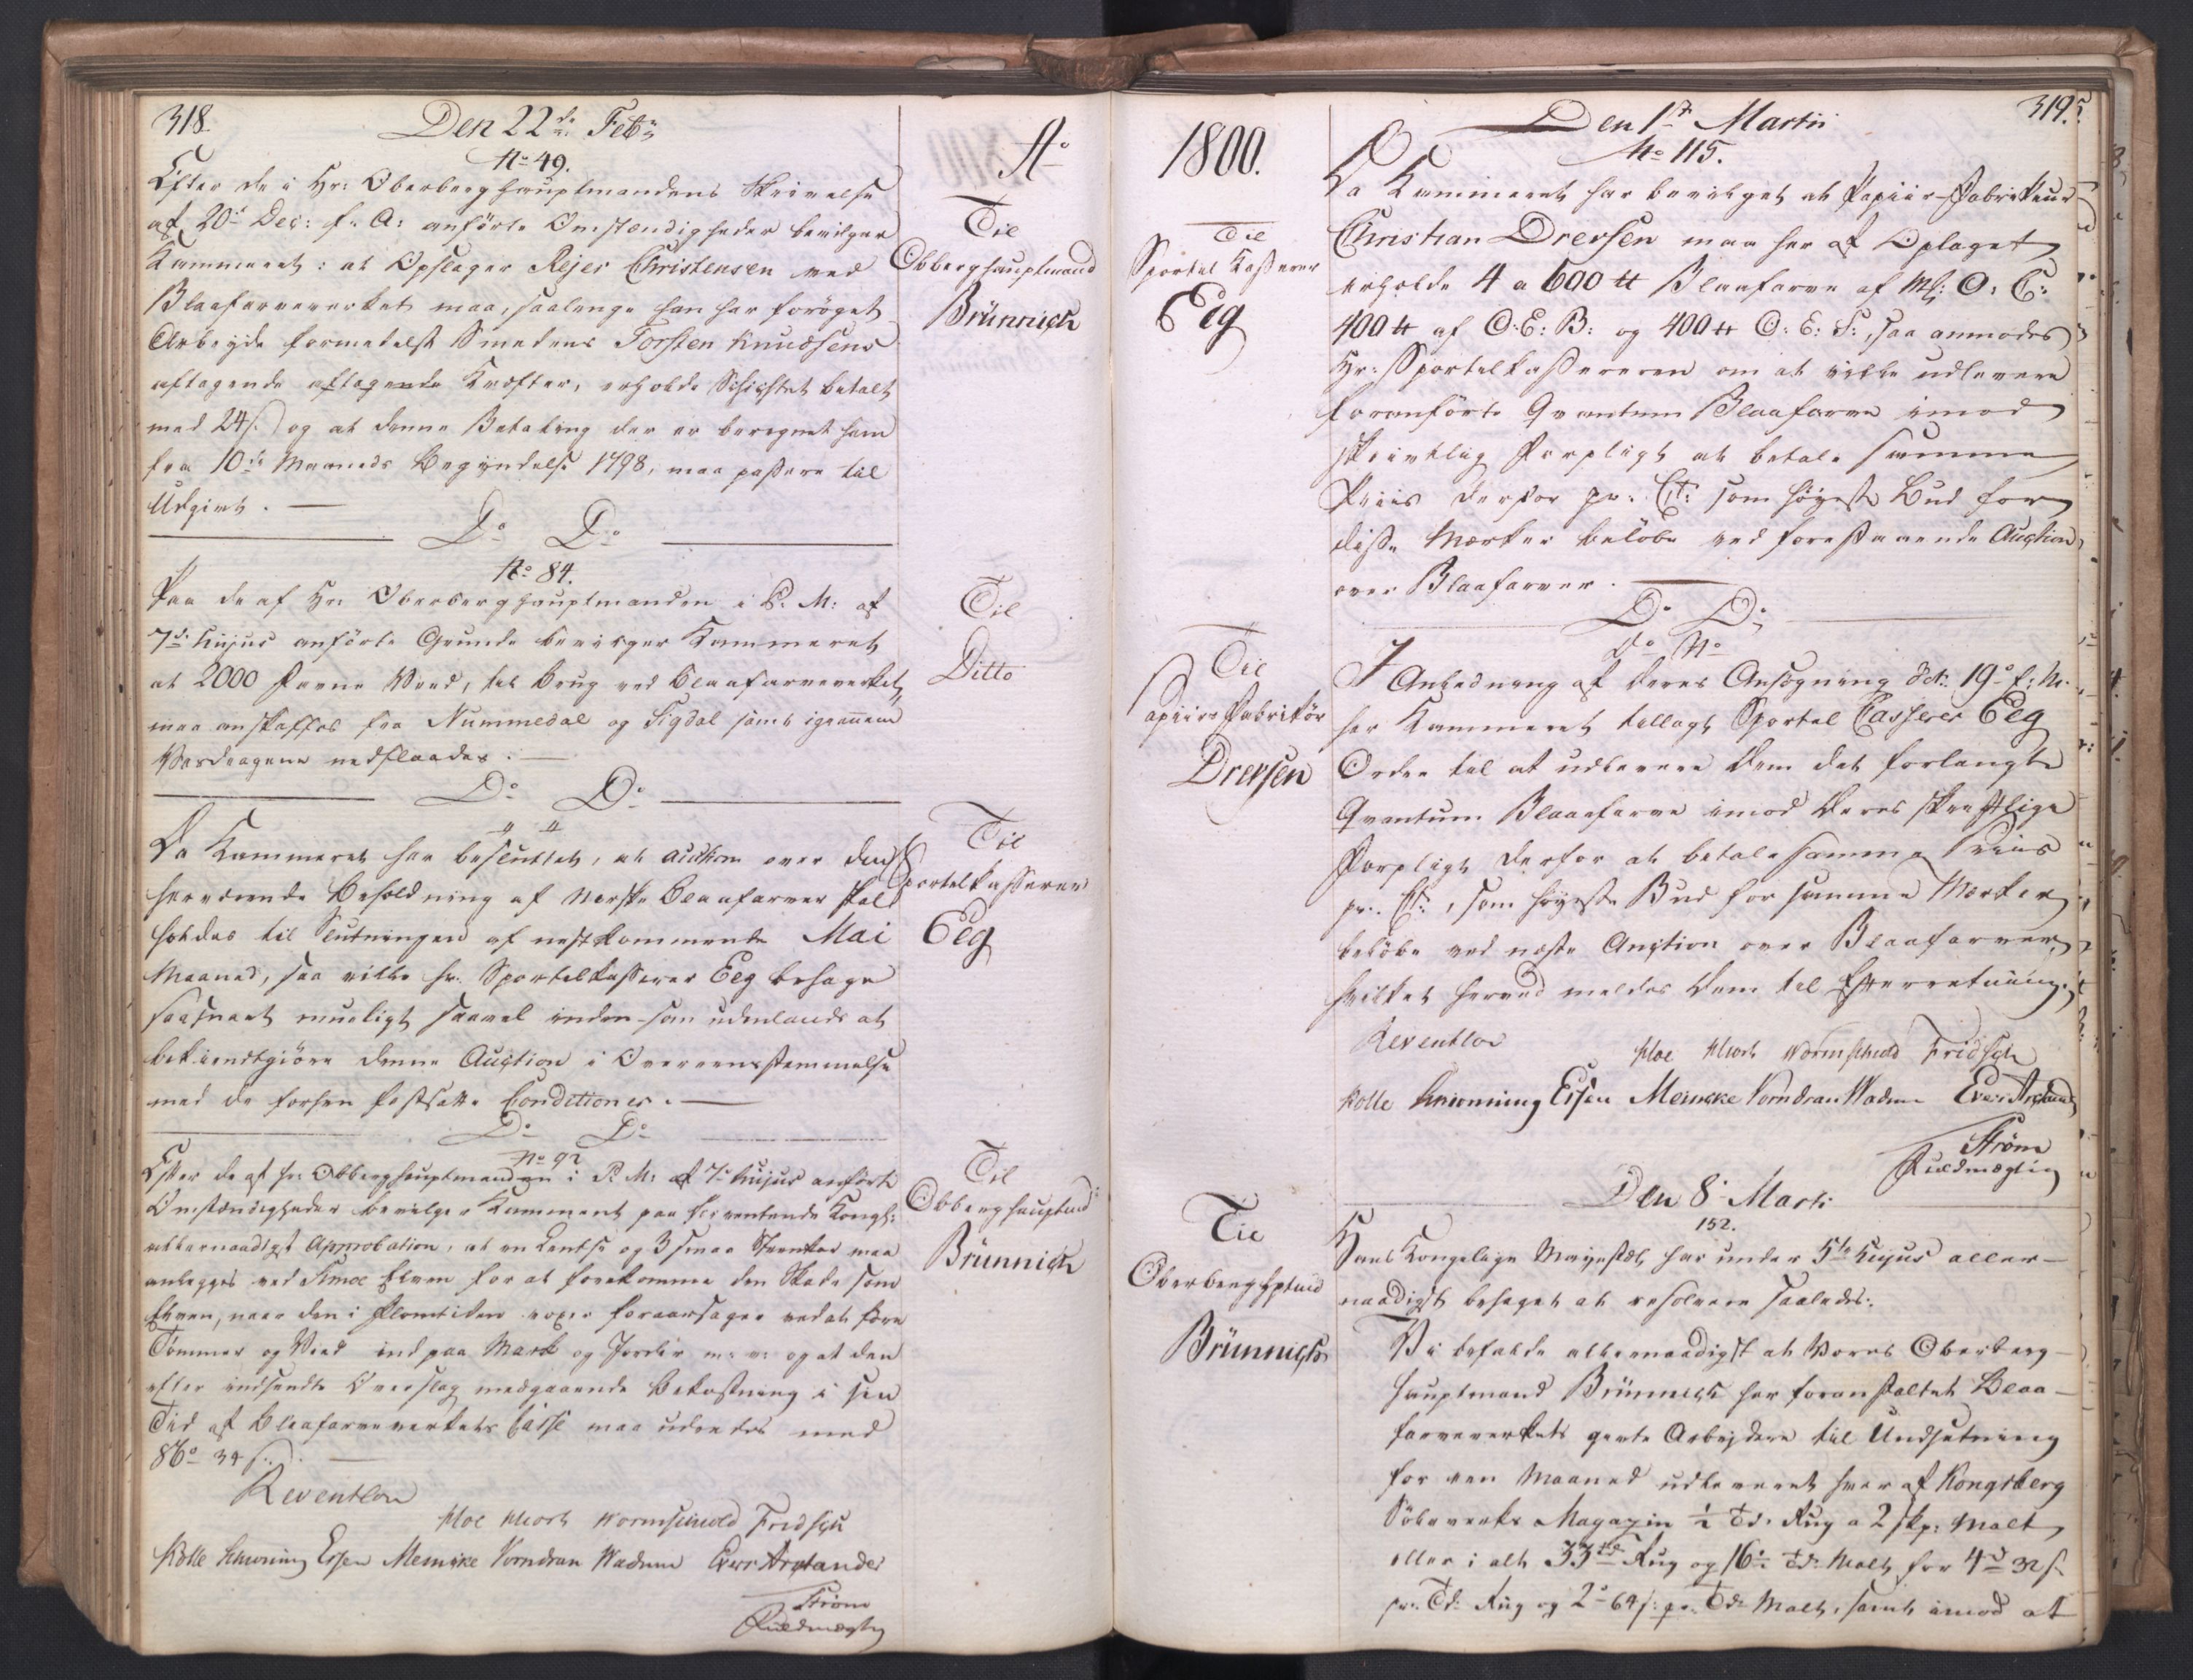 318.
Den 22de Febr:
No 49.
Efter de i Hr: Oberberghauptmandens Skrivelse
af 20de Dec: f: A: anførte Omstændigheder bevilger
Kammeret: at Opsleger Rejer Christensen ved
Blaafarveverket maa, saalænge han har forøget
Arbeyde formedelst Smedens Torsten Knudsens
aftagende aftagende Kræfter, erholde Schichtet betalt
med 24 s. og at denne Betaling der er beregnet ham
fra 10de Maaneds Begyndelse 1798, maa passere til
Udgivt.
Do Do
No 84.
Paa de af Hr: Oberberghauptmanden i P. M: af
7de hujus anførte Grunde bevilger Kammeret
at 2000 Favne Veed, til Brug ved Blaafarveverket,
maa anskaffes fra Nummedal og Sigdal samt igiennem
Vasdragene nedflaades.
Do Do
" "
Da Kammeret har besluttet, at Auction over den
herværende Beholdning af Norske Blaafarver skal
holdes til Slutningen af nestkommende Mai
Maaned, saa ville Hr. Sportelkasserer Eeg behage
saasnart mueligt saavel inden- som udenlands at
bekiendtgiøre denne Auction i Overeensstemmelse
med de forhen fastsatte Conditioner.
Do Do
No 92
Efter de af Hr: Obberghauptmanden i P. M: af 7de hujus anførte
Omstændigheder bevilger Kammeret paa forventende Kongl:
allernaadigst Approbation, at en Lentse og 3 smaa Steenkar maa
anlegges ved Simoe Elven for at forekomme den Skade som
Elven, naar den i Flomtiden voxer foraarsager ved at føre
Tømmer og Veed ind paa Mark og Jorder m: v: og at den
efter indsendte Overslag medgaaende Bekostning i sin
Tid af Blaafarveverkets Casse maa udredes med
86 34 s.
Reventlow
Moe Morh Wormskiold Fridsch
Rolle Schwoning Essen Meincke Vorndran Wadum Evers Arctander
Strøm
Fuldmægtig
Ao
Til
Obberghauptmand
Brünnich
Til
Ditto
Til
Sportelkasserer
Eeg
Til
Obberghauptmd:
Brünnich
1800.
Til
Sportel Kasserer
Eeg
Til
Papiir Fabrikør
Drevsen
Til
Oberberghptmd
Brünnich
319.
Den 1ste Martii
No 115.
Da Kammeret har bevilget at Papiir-Fabrikeur
Christian Drevsen maa her af Oplaget
erholde 4 a 600 ℔ Blaafarve af Mk: O: C:
400 ℔ af O: E: B: og 400 ℔ O: E: S:, saa anmodes
Hr: Sportelkassereren om at ville udlevere
foranførte Qvantum Blaafarve imod
skrivtlig Forpligt at betale samme
Priis derfor pr: Ct: som høyeste Bud for
disse Mærker beløbe ved forestaaende Auction
over Blaafarver.
Do Do
Do No
I Anledning af Deres Ansøgning dat: 19de f: M.
har Kammeret tillagt Sportel Casserer Eeg
Ordre til at udlevere Dem det forlangte
Qvantum Blaafarve imod Deres skriftlige
Forpligt derfor at betale samme Priis
pr: Ct:, som høyeste Bud for samme Mærker
beløbe ved næste Auction over Blaafarver,
hvilket herved meldes Dem til Efterretning.
Reventlow
Moe Morh Wormskiold Fridsch
Rolle Schwoning Essen Meincke Vorndran Wadum Evers Arctander
Strøm
Fuldmægtig
Den 8de Marti
152.
Hans Kongelige Mayestæt har under 5te hujus aller-
naadigst behaget at resolvere saaledes:
Vi befalde allernaadigst at Vores Oberberg-
hauptmand Brünnich har foranstaltet Blaa-
farveverkets gevte Arbejdere til Undsætning
for een Maaned udleveret hver af Kongsberg
Sølvverks Magazin ½ Td: Rug a 2 skp: Malt,
eller i alt 33 Td: Rug og 16½ Td: Malt, for 4 32 s.
pr: Td: Rug og 2 64 s: pr: Td: Malt, samt imod at